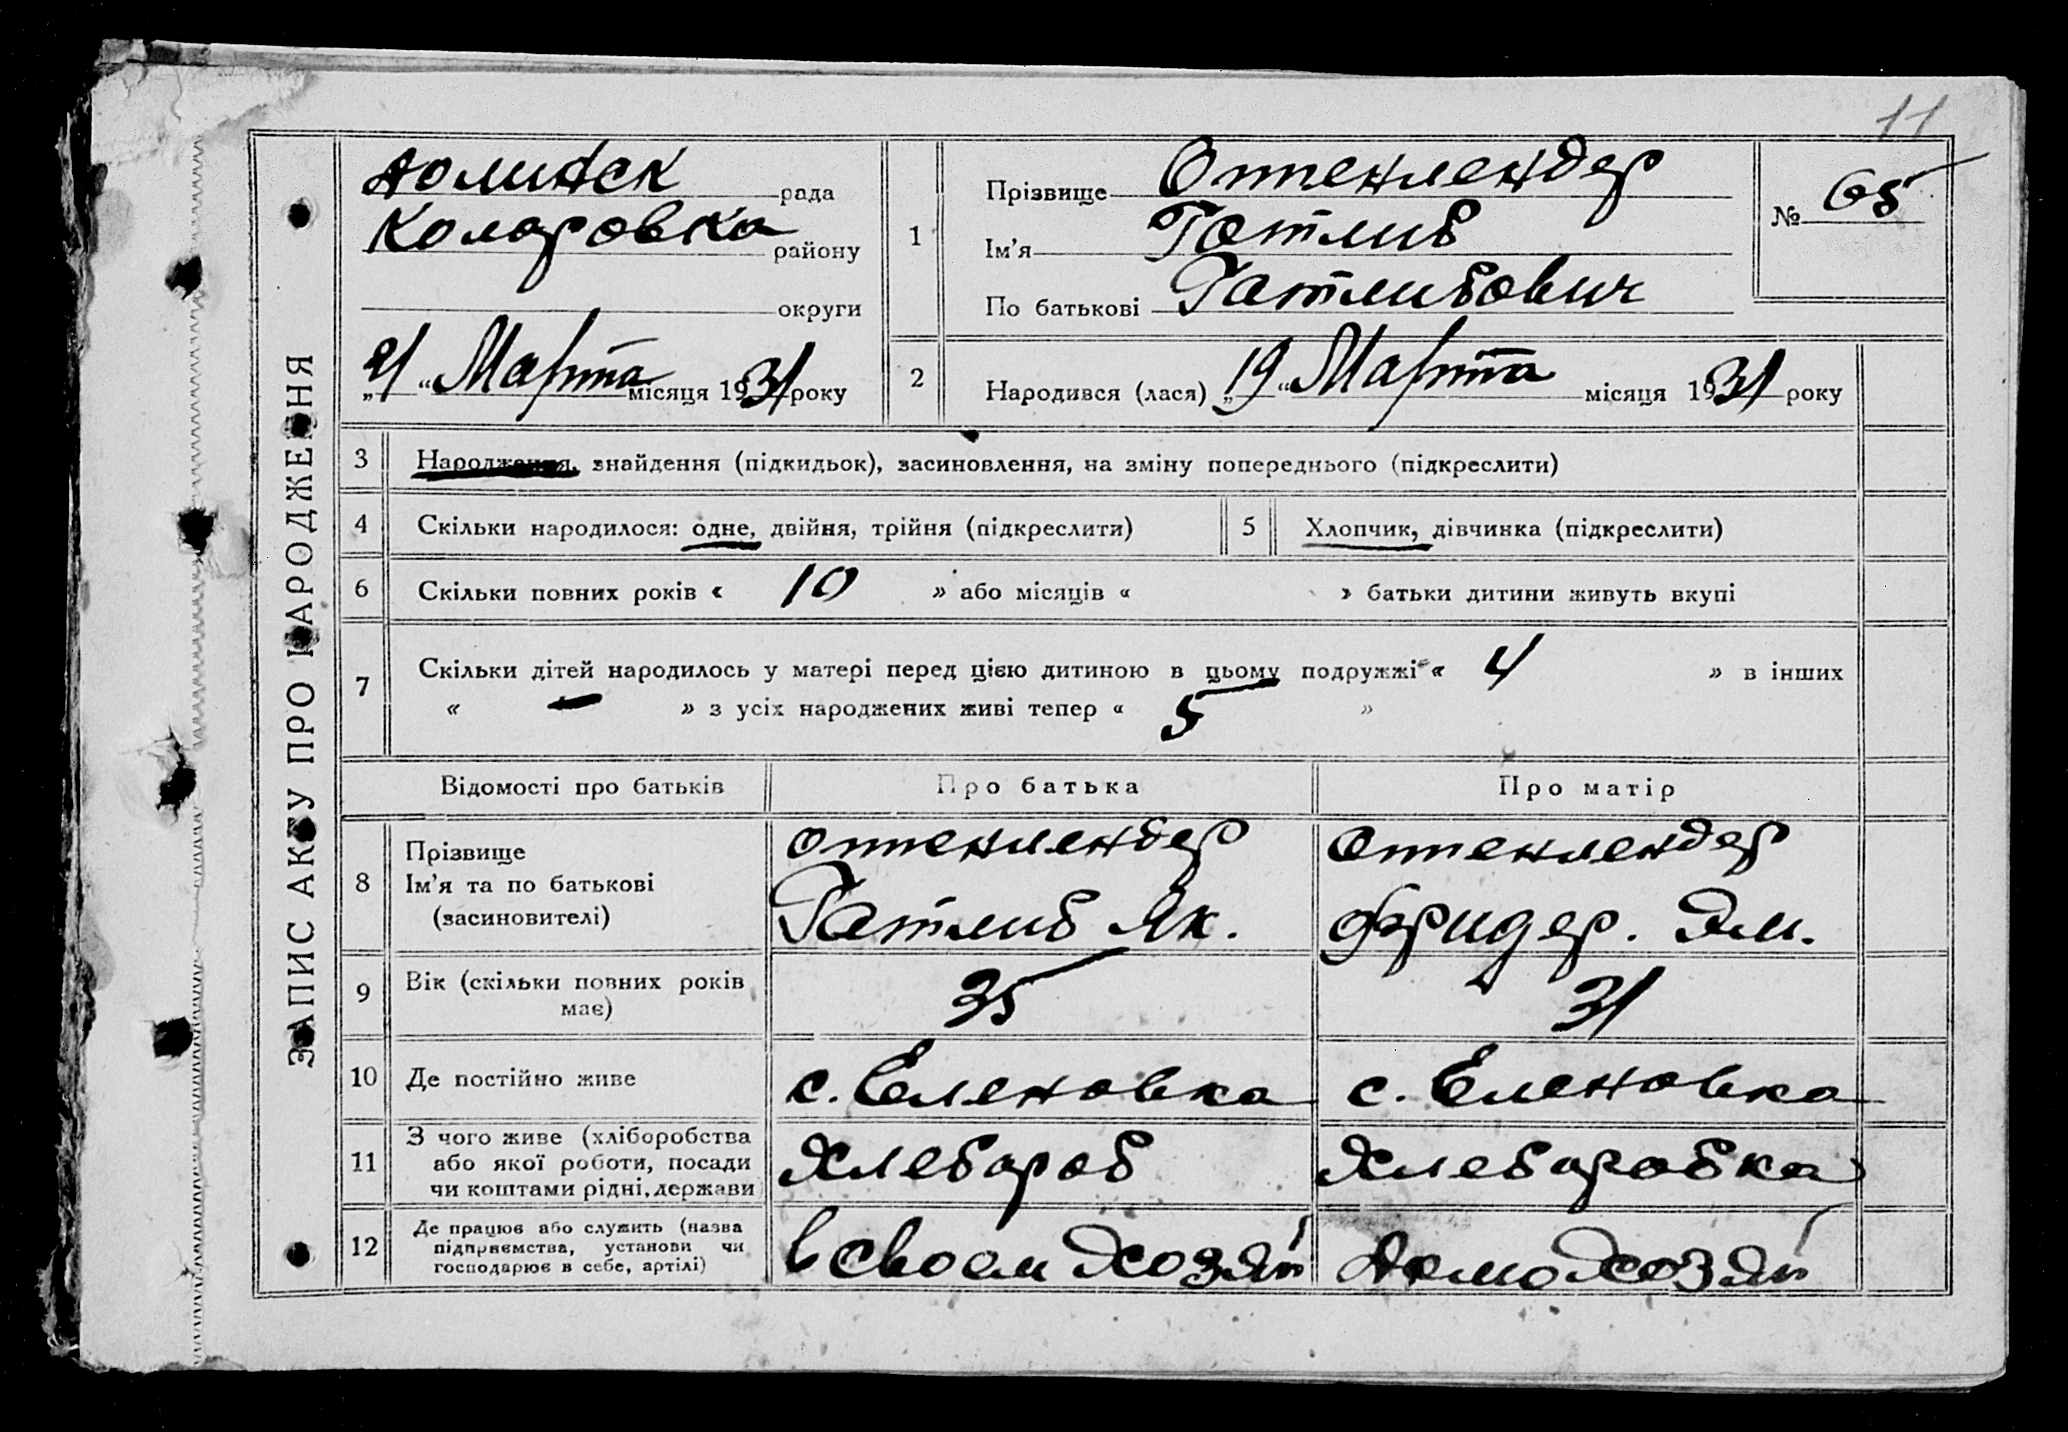 11
ЗАПИС АКТУ ПРО НАРОДЖЕННЯ
Долинск рада
Коларовка району
округи
„21“ Марта місяця 1931 року
1
Прізвище Оппенлендер
Ім'я Готлиб
По батькові Готлибович
№ 65
2 Народився (лася) „19“ Марта місяця 1931 року
3 Народження, знайдення (підкидьок), засиновлення, на зміну попереднього (підкреслити)
4 Скільки народилося: одне, двійня, трійня (підкреслити) 5 Хлопчик, дівчинка (підкреслити)
6 Скільки повних років « 10 » або місяців « » батьки дитини живуть вкупі
7 Скільки дітей народилось у матері перед цією дитиною в цьому подружжі « 4 » в інших
« — » з усіх народжених живі тепер « 5 »
Відомості про батьків Про батька Про матір
8 Прізвище Оппенлендер Оппенлендер
Ім'я та по батькові Готлиб Як. Фридер. Эм.
(засиновителі)
9 Вік (скільки повних років має) 35 31
10 Де постійно живе с. Еленовка с. Еленовка
11 З чого живе (хліборобства
або якої роботи, посади Хлебороб Хлеборобка
чи коштами рідні, держави
12 Де працює або служить (назва
підприємства, установи чи в своем хозяй Домохозяй
господарює в себе, артілі)